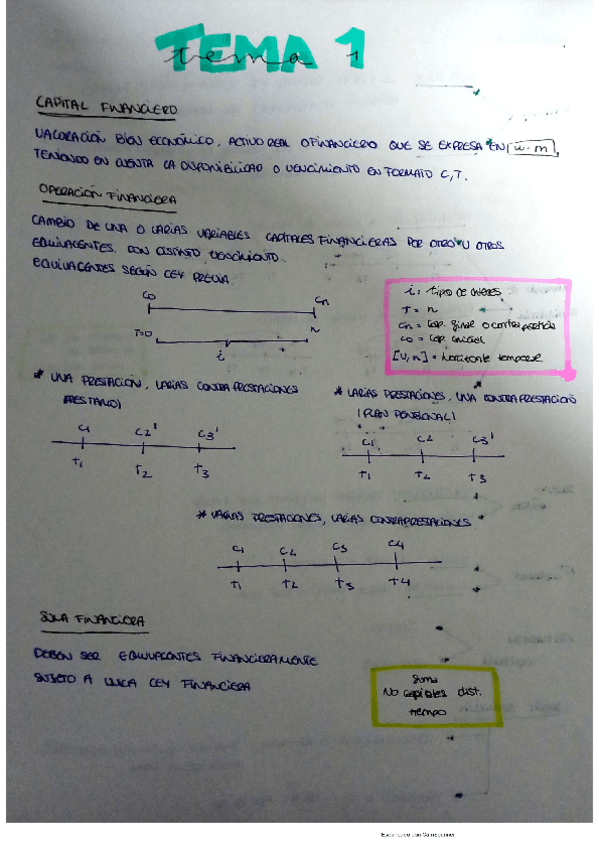 TEMA 1
tema 1
CAPITAL FINANCIERO
VALORACIÓN BIEN ECONÓMICO, ACTIVO REAL O FINANCIERO QUE SE EXPRESA EN u.m,
TENIENDO EN CUENTA LA DISPONIBILIDAD O VENCIMIENTO EN FORMATO C,T.
OPERACIÓN FINANCIERA
CAMBIO DE UNA O VARIAS VARIABLES CAPITALES FINANCIERAS POR OTRO U OTROS
EQUIVALENTES. CON DISTINTO VENCIMIENTO.
EQUIVALENTES SEGÚN LEY PREVIA.
C0 Cn
T=0 n
i
i = tipo de interes
T = n
Cn = Cap. final o contraprestación
C0 = Cap. inicial
= horizonte temporal
* UNA PRESTACIÓN, VARIAS CONTRAPRESTACIONES
(PRESTAMO)
C1 C2' C3'
T1 T2 T3
* VARIAS PRESTACIONES, UNA CONTRAPRESTACIÓN
(PLAN PENSIONAL)
C1 C2 C3'
T1 T2 T3
* VARIAS PRESTACIONES, VARIAS CONTRAPRESTACIONES
C1 C2 C3 C4
T1 T2 T3 T4
SUMA FINANCIERA
DEBEN SER EQUIVALENTES FINANCIERAMENTE
SUJETO A UNICA LEY FINANCIERA
Suma
No capitales dist.
tiempo
Escaneado con CamScanner